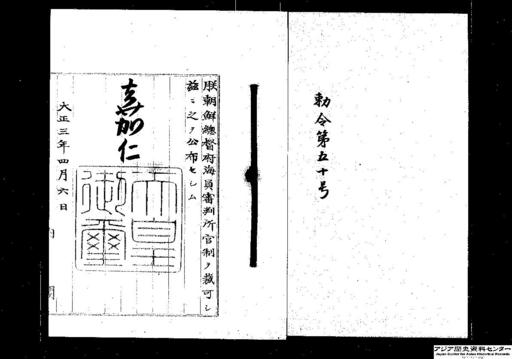 勅令第五十号
朕朝鮮総督府海員審判所官制ヲ裁可シ
茲ニ之ヲ公布セシム
嘉仁
天皇御璽
大正三年四月六日
内
アジア歴史資料センター
Japan Center for Asian Historical Records